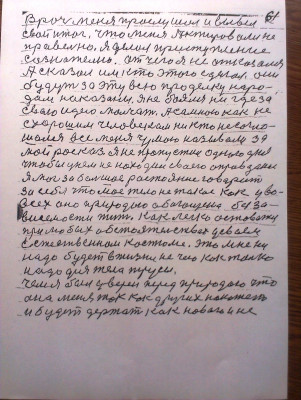 61
Врач меня прослушал и вывел
свой итог, что меня Актировали не
правельно. Я делал приступление
сознательно. от чего я не отказался
Я сказал им кто этого сделал. они
будут за эту всю проделку наро-
дом наказаны. Я не боялся нигде за
свою идею молчат. А самною как не
схорошим человеком никто не согло-
шался все меня чумою называли за
мой росказ я не пропустил одного дня
чтобы у нем не находил своего оправдания
Я мог за большое растояние говарить
за себя что мое тело не такое как у во-
всех оно природою обогощена без за-
висемости жить. Как легко оставатсу
при любых обстоятельствах
Естественном костюме. Это мне ни
надо будет в жизни не чего как только
надо для тела трусы.
Чем я был уверен перед природою что
она меня так как других накожет
и будет держат как новога и не